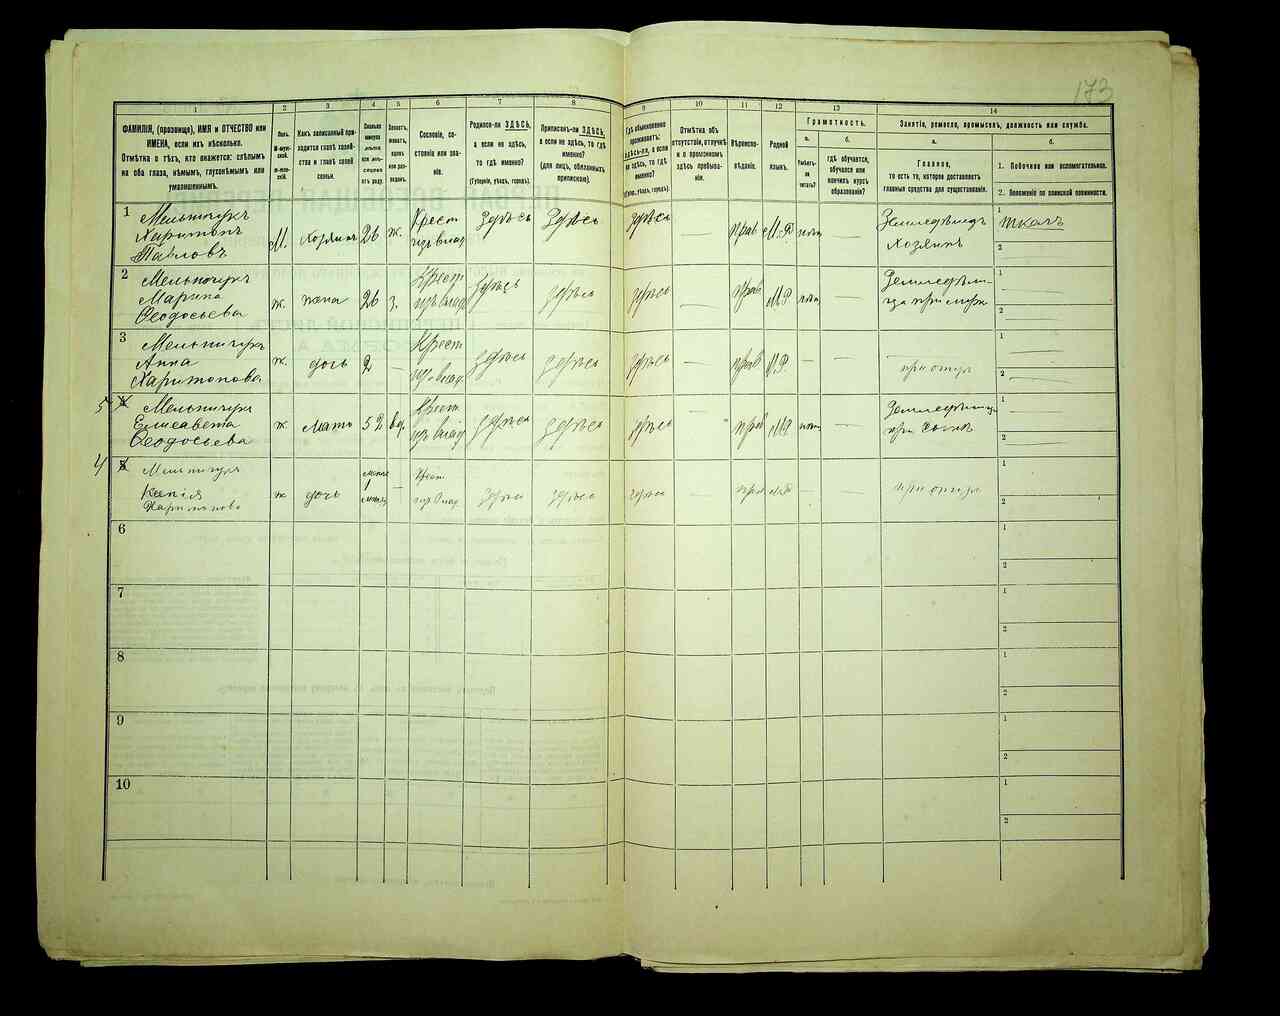 173
1 2 3 4 5 6 7 8 9 10 11 12 13 14
ФАМИЛІЯ, (прозвище), ИМЯ и ОТЧЕСТВО или
ИМЕНА, если ихъ нѣсколько.
Отмѣтка о тѣхъ, кто окажется: слѣпымъ
на оба глаза, нѣмымъ, глухонѣмымъ или
умалишеннымъ.
Полъ.
М-мужской.
Ж-женскій.
Какъ записанный приходится главѣ хозяйства и главѣ своей семьи.
Сословіе, состояніе или званіе.
Родился-ли ЗДѢСЬ,
а если не здѣсь,
то гдѣ именно?
(Губернія, уѣздъ, городъ).
Приписанъ-ли ЗДѢСЬ,
а если не здѣсь, то гдѣ
именно?
(для лицъ, обязанныхъ
припискою).
Гдѣ обыкновенно
проживаетъ:
здѣсь-ли, а если
не здѣсь, то гдѣ
именно?
(Губ., уѣздъ, городъ).
Отмѣтка объ
отсутствіи, отлучкѣ
и о временномъ
здѣсь пребываніи.
Вѣроисповѣданіе.
Родной
языкъ.
Грамотность.
а.
Умѣетъ-ли
читать?
б.
гдѣ обучается,
обучался или
кончилъ курсъ
образованія?
Занятіе, ремесло, промыселъ, должность или служба.
а.
Главное,
то есть то, которое доставляетъ
главныя средства для существованія.
б.
1. Побочное или вспомогательное.
2. Положеніе по воинской повинности.
1
Мельничукъ
Харитонъ
Павловъ
М. Хозяинъ 26 ж. Крест изъ влад Здѣсь Здѣсь Здѣсь — прав М.Р —
Хозяинъ
1 ткачъ
2
2
Мельничукъ
Марина
Ѳеодосьева
ж. жена 26 з. Крест изъ влад Здѣсь здѣсь здѣсь — прав М.Р. —
1
2
3
Мельничукъ
Анна
Харитонова
ж. дочь 2 — Крест изъ влад здѣсь здѣсь здѣсь — прав М.Р. — —
при отцѣ
1
2
5 4
Мельничукъ
Елисавета
Ѳеодосьева
ж мать 52 вд. Крест изъ влад здѣсь здѣсь здѣсь — прав М.Р —
при сынѣ
1
2
4 5
Мельничукъ
Ксенія
Харитонова
ж дочь 1 — Крест изъ влад здѣсь здѣсь здѣсь — прав М.Р —
при отцѣ
1
2
6
1
2
7
1
2
8
1
2
9
1
2
10
1
2